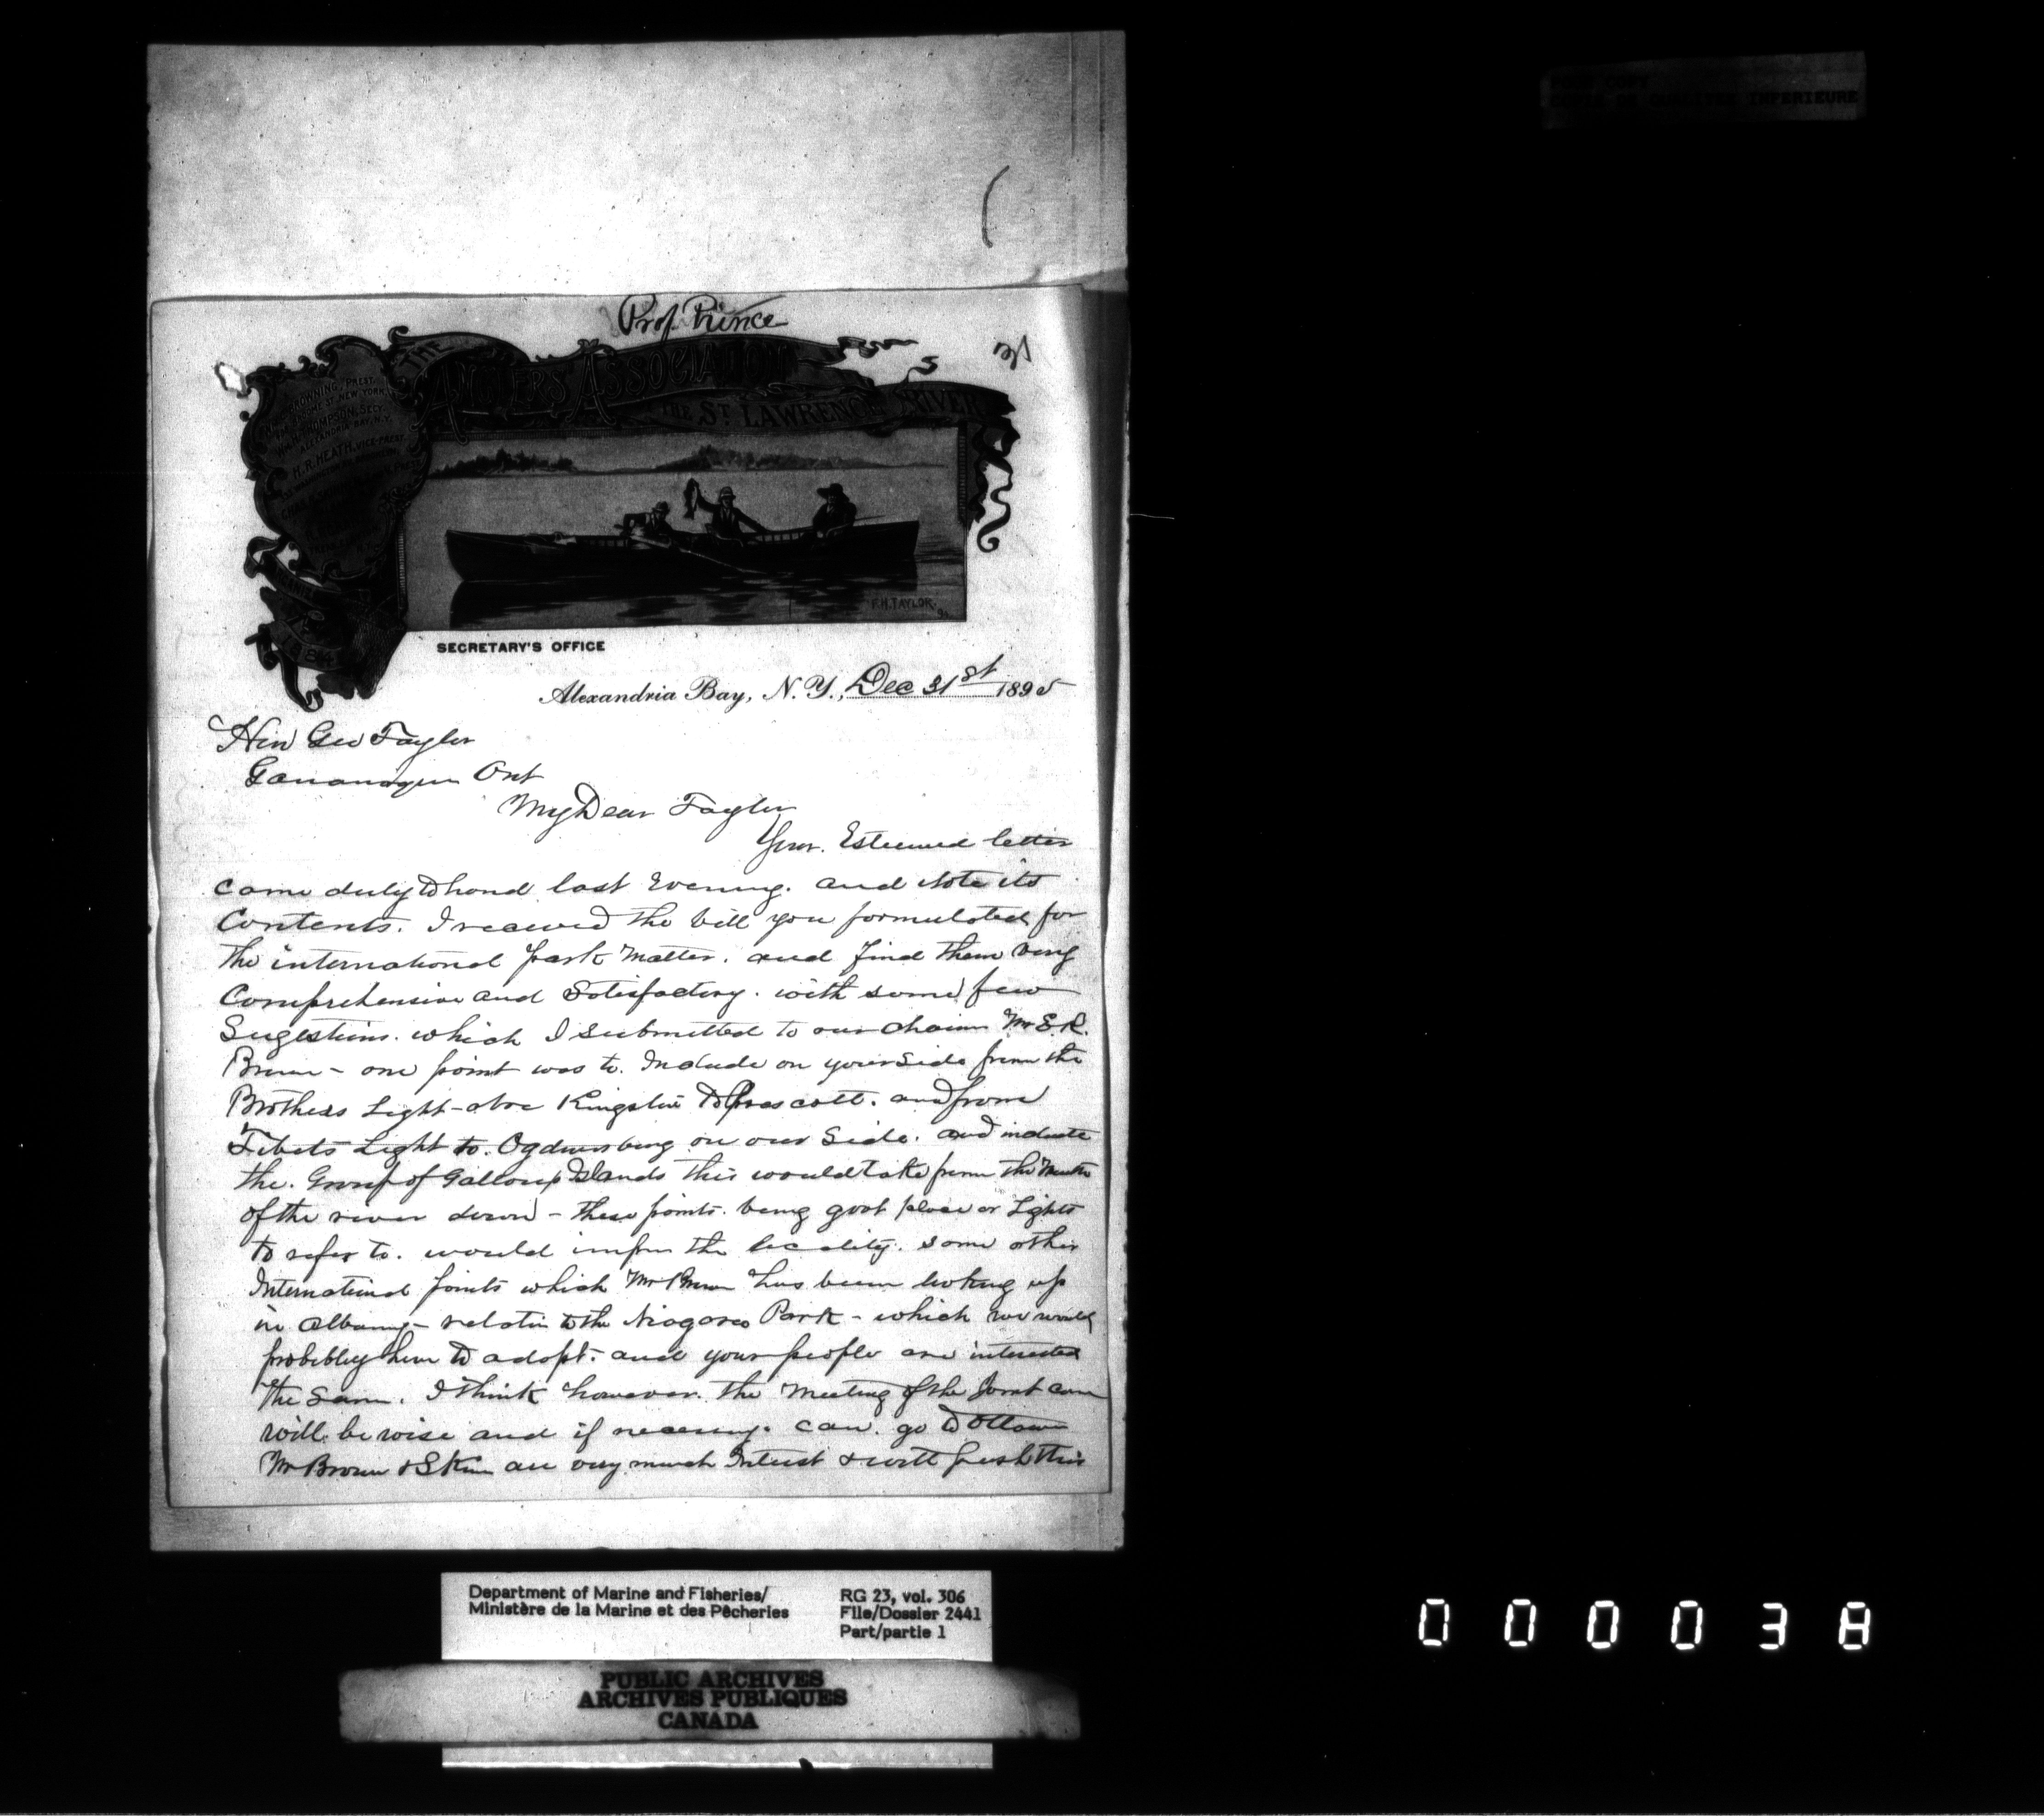 COPIE DE QUALITEE INFERIEURE
Prof. Prince
31
THE
ANGLERS' ASSOCIATION
OF THE ST. LAWRENCE RIVER
BROWNING, PREST.
NEW YORK
THOMPSON, SECY.
ALEXANDRIA BAY, N.Y.
H. R. HEATH, VICE-PREST.
F.H. TAYLOR.
SECRETARY'S OFFICE
Alexandria Bay, N. Y., Dec 31st 1895
Hon Geo Taylor
Gananoque Ont
My Dear Taylor
Your Esteemed letter
came duly to hand last Evening. and Note its
Contents. I received the bill you formulated for
the international park matter. and find them very
Comprehensive and Satisfactory. with some few
Sugestions. which I submitted to our chairm Mr E.R.
Brown - one point was to. Include on your side from the
Brothers Light - above Kingston to Prescott. and from
Tibets Light to. Ogdensburg on our Side. and include
the. Group of Galloup Islands this would take from the Mouth
of the river down - these points. being good place or Lights
to refer to. would the locality. some other
International points which Mr Brown has been looking up
in Albany - relation to the Niagara Park - which we would
probibley have to adopt. and your people are interested
the same. I think however. the Meeting of the Joint com
will be wise and if necessary. can. go to Ottawa
Mr Brown & Skin are very much Intrest & will push this
Department of Marine and Fisheries/
Ministère de la Marine et des Pêcheries
RG 23, vol. 306
File/Dossier 2441
Part/partie 1
PUBLIC ARCHIVES
ARCHIVES PUBLIQUES
CANADA
000038